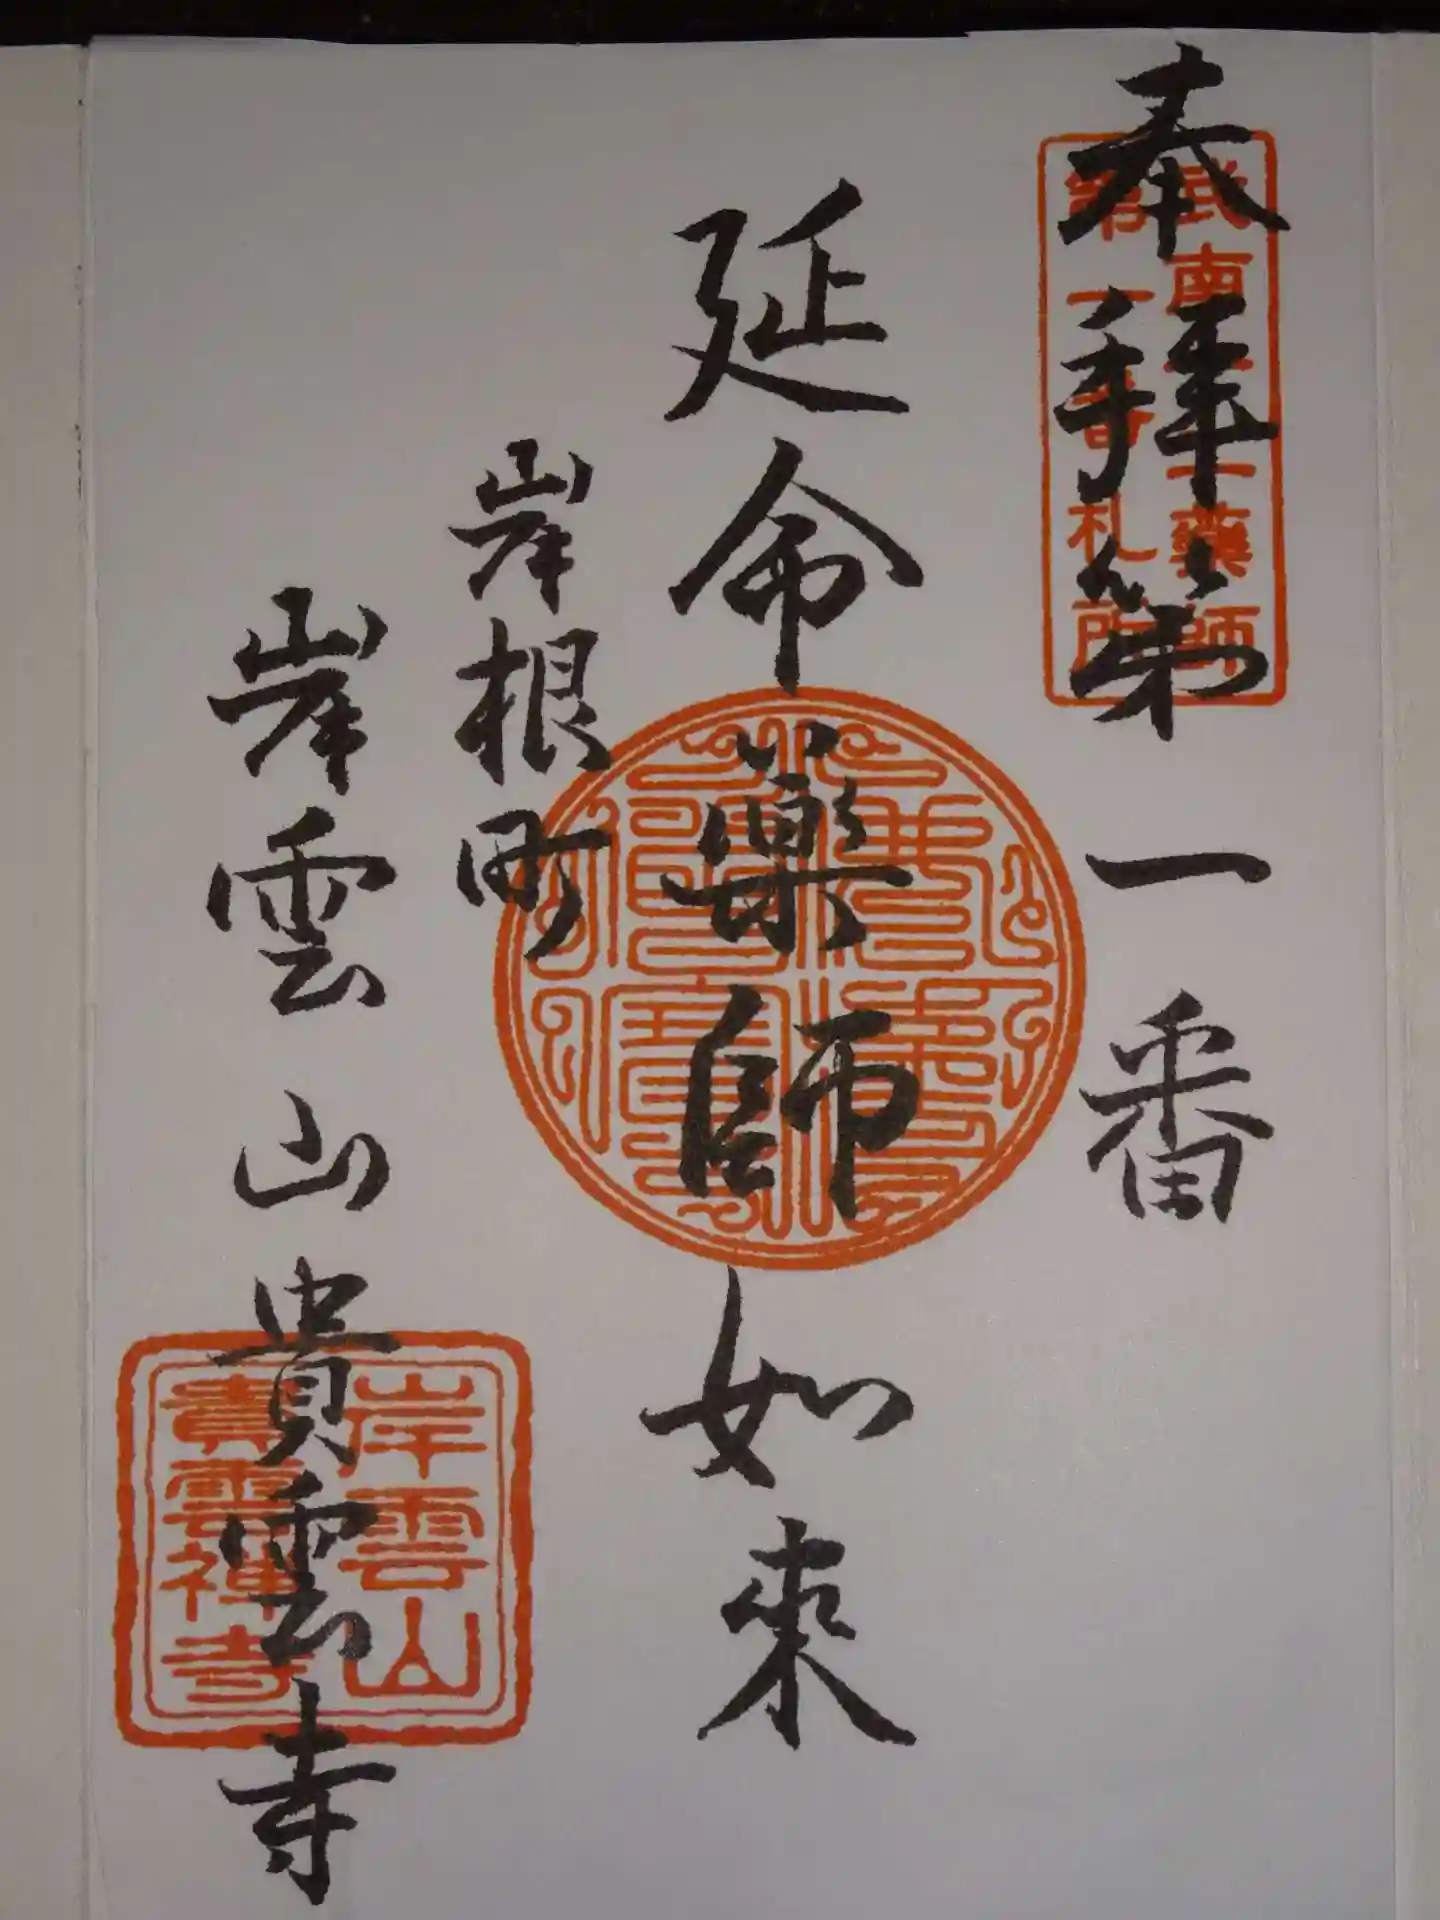 奉拜第一番
武南十二藥師
第一番札所
延命藥師如來
岸根町
岸雲山貴雲寺
岸雲山
貴雲禅寺